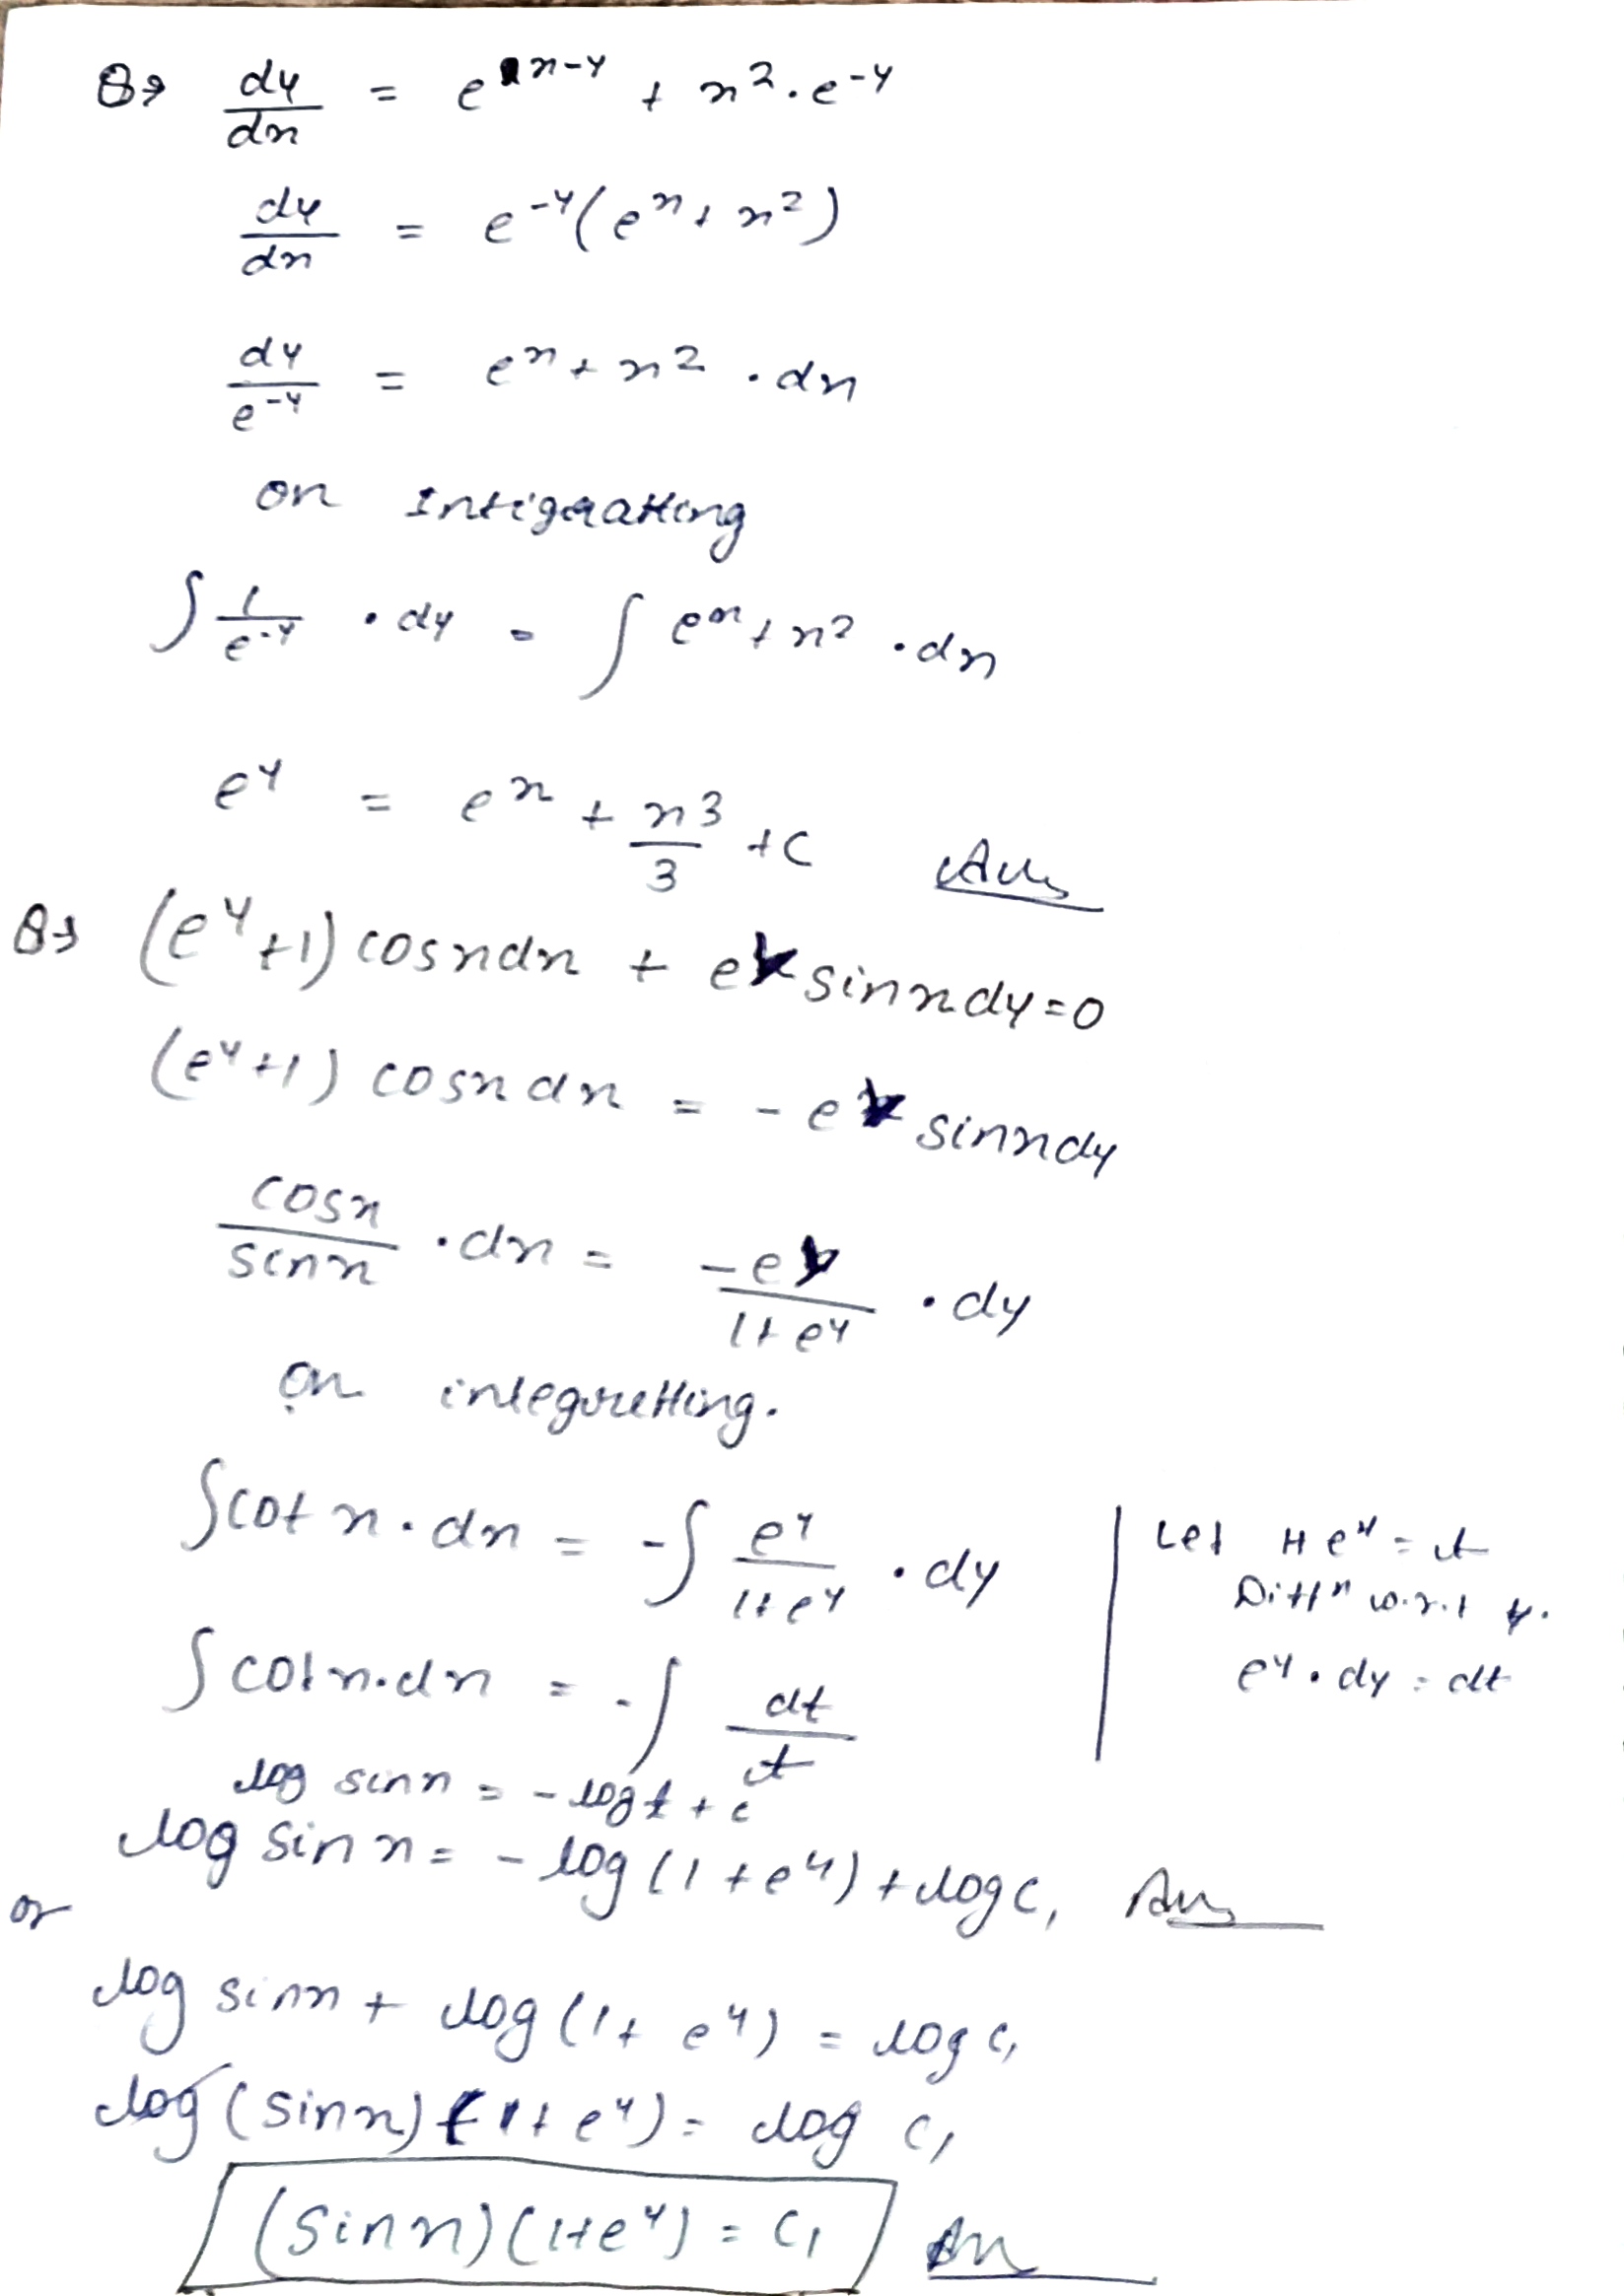 Q→ dy/dx = e^x-y + x^2 . e^-y
dy/dx = e^-y (e^x + x^2)
dy/e^-y = e^x + x^2 . dx
on Intigratting
∫ 1/e^-y . dy = ∫ e^x + x^2 . dx
e^y = e^x + x^3/3 + c Ans
Q→ (e^y + 1) cosx dx + e^y sinx dy = 0
(e^y + 1) cosx dx = - e^y sinx dy
cosx/sinx . dx = -e^y/1+e^y . dy
on integretting.
∫ cot x . dx = -∫ e^y/1+e^y . dy
Let 1+e^y = t
Diffn w.r.t y.
e^y . dy = dt
∫ cot x . dx = -∫ dt/t
log sinx = - log t + c
log sin x = - log (1 + e^y) + log c₁ Ans
or
log sinx + log (1 + e^y) = log c₁
log (sinx) (1 + e^y) = log c₁
(sin x) (1+e^y) = c₁ An